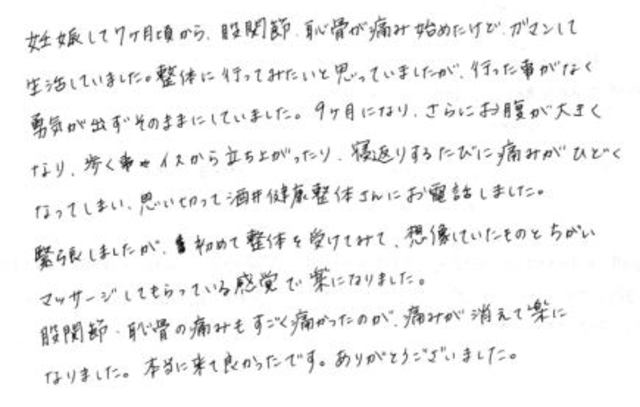 妊娠して7ヶ月頃から、股関節、恥骨が痛み始めたけど、ガマンして
生活していました。整体に行ってみたいと思っていましたが、行った事がなく
勇気が出ずそのままにしていました。9ヶ月になり、さらにお腹が大きく
なり、歩く事やイスから立ち上がったり、寝返りするたびに痛みがひどく
なってしまい、思い切って酒井健康整体さんにお電話しました。
緊張しましたが、初めて整体を受けてみて、想像していたものとちがい
マッサージしてもらっている感覚で楽になりました。
股関節・恥骨の痛みもすごく痛かったのが、痛みが消えて楽に
なりました。本当に来て良かったです。ありがとうございました。